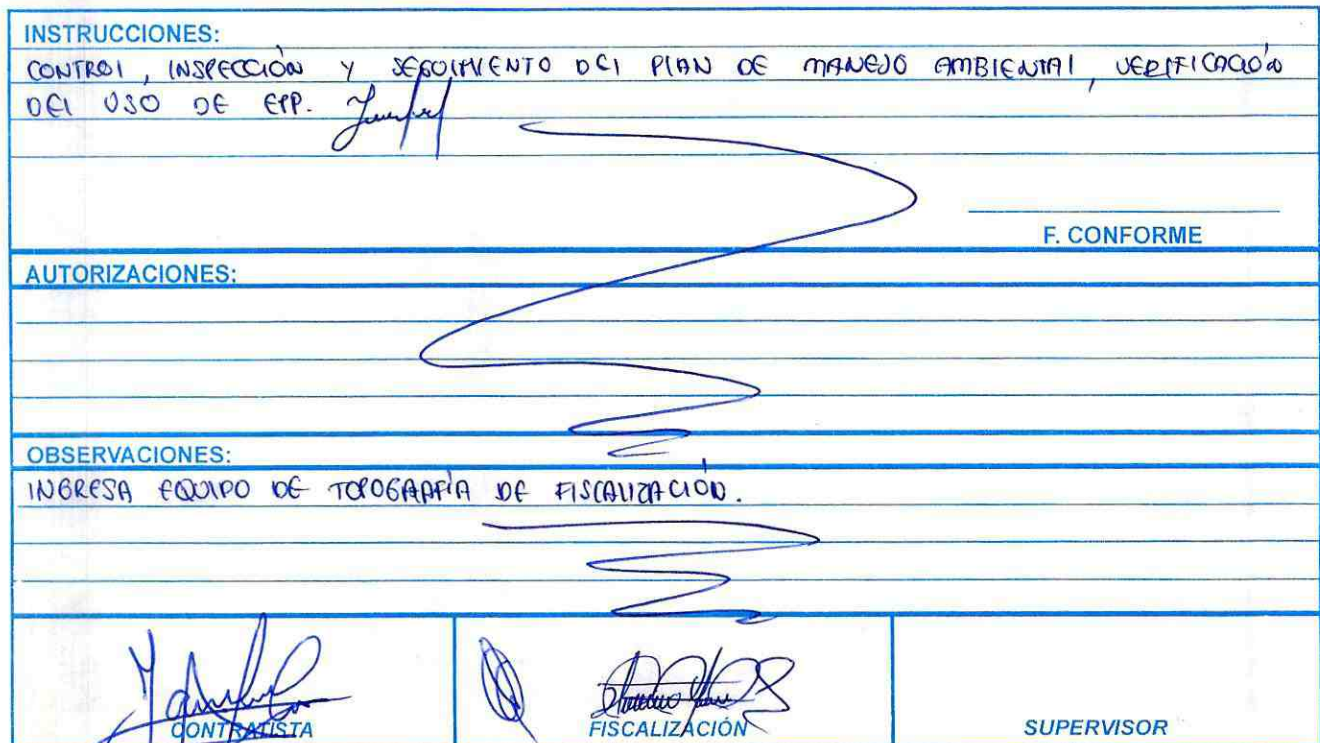 INSTRUCCIONES:
CONTROL, INSPECCIÓN Y SEGUIMIENTO DEL PLAN DE MANEJO AMBIENTAL, VERIFICACIÓN
DEL USO DE EPP.
F. CONFORME
AUTORIZACIONES:
OBSERVACIONES:
INGRESA EQUIPO DE TOPOGRAFÍA DE FISCALIZACIÓN.
CONTRATISTA FISCALIZACIÓN SUPERVISOR